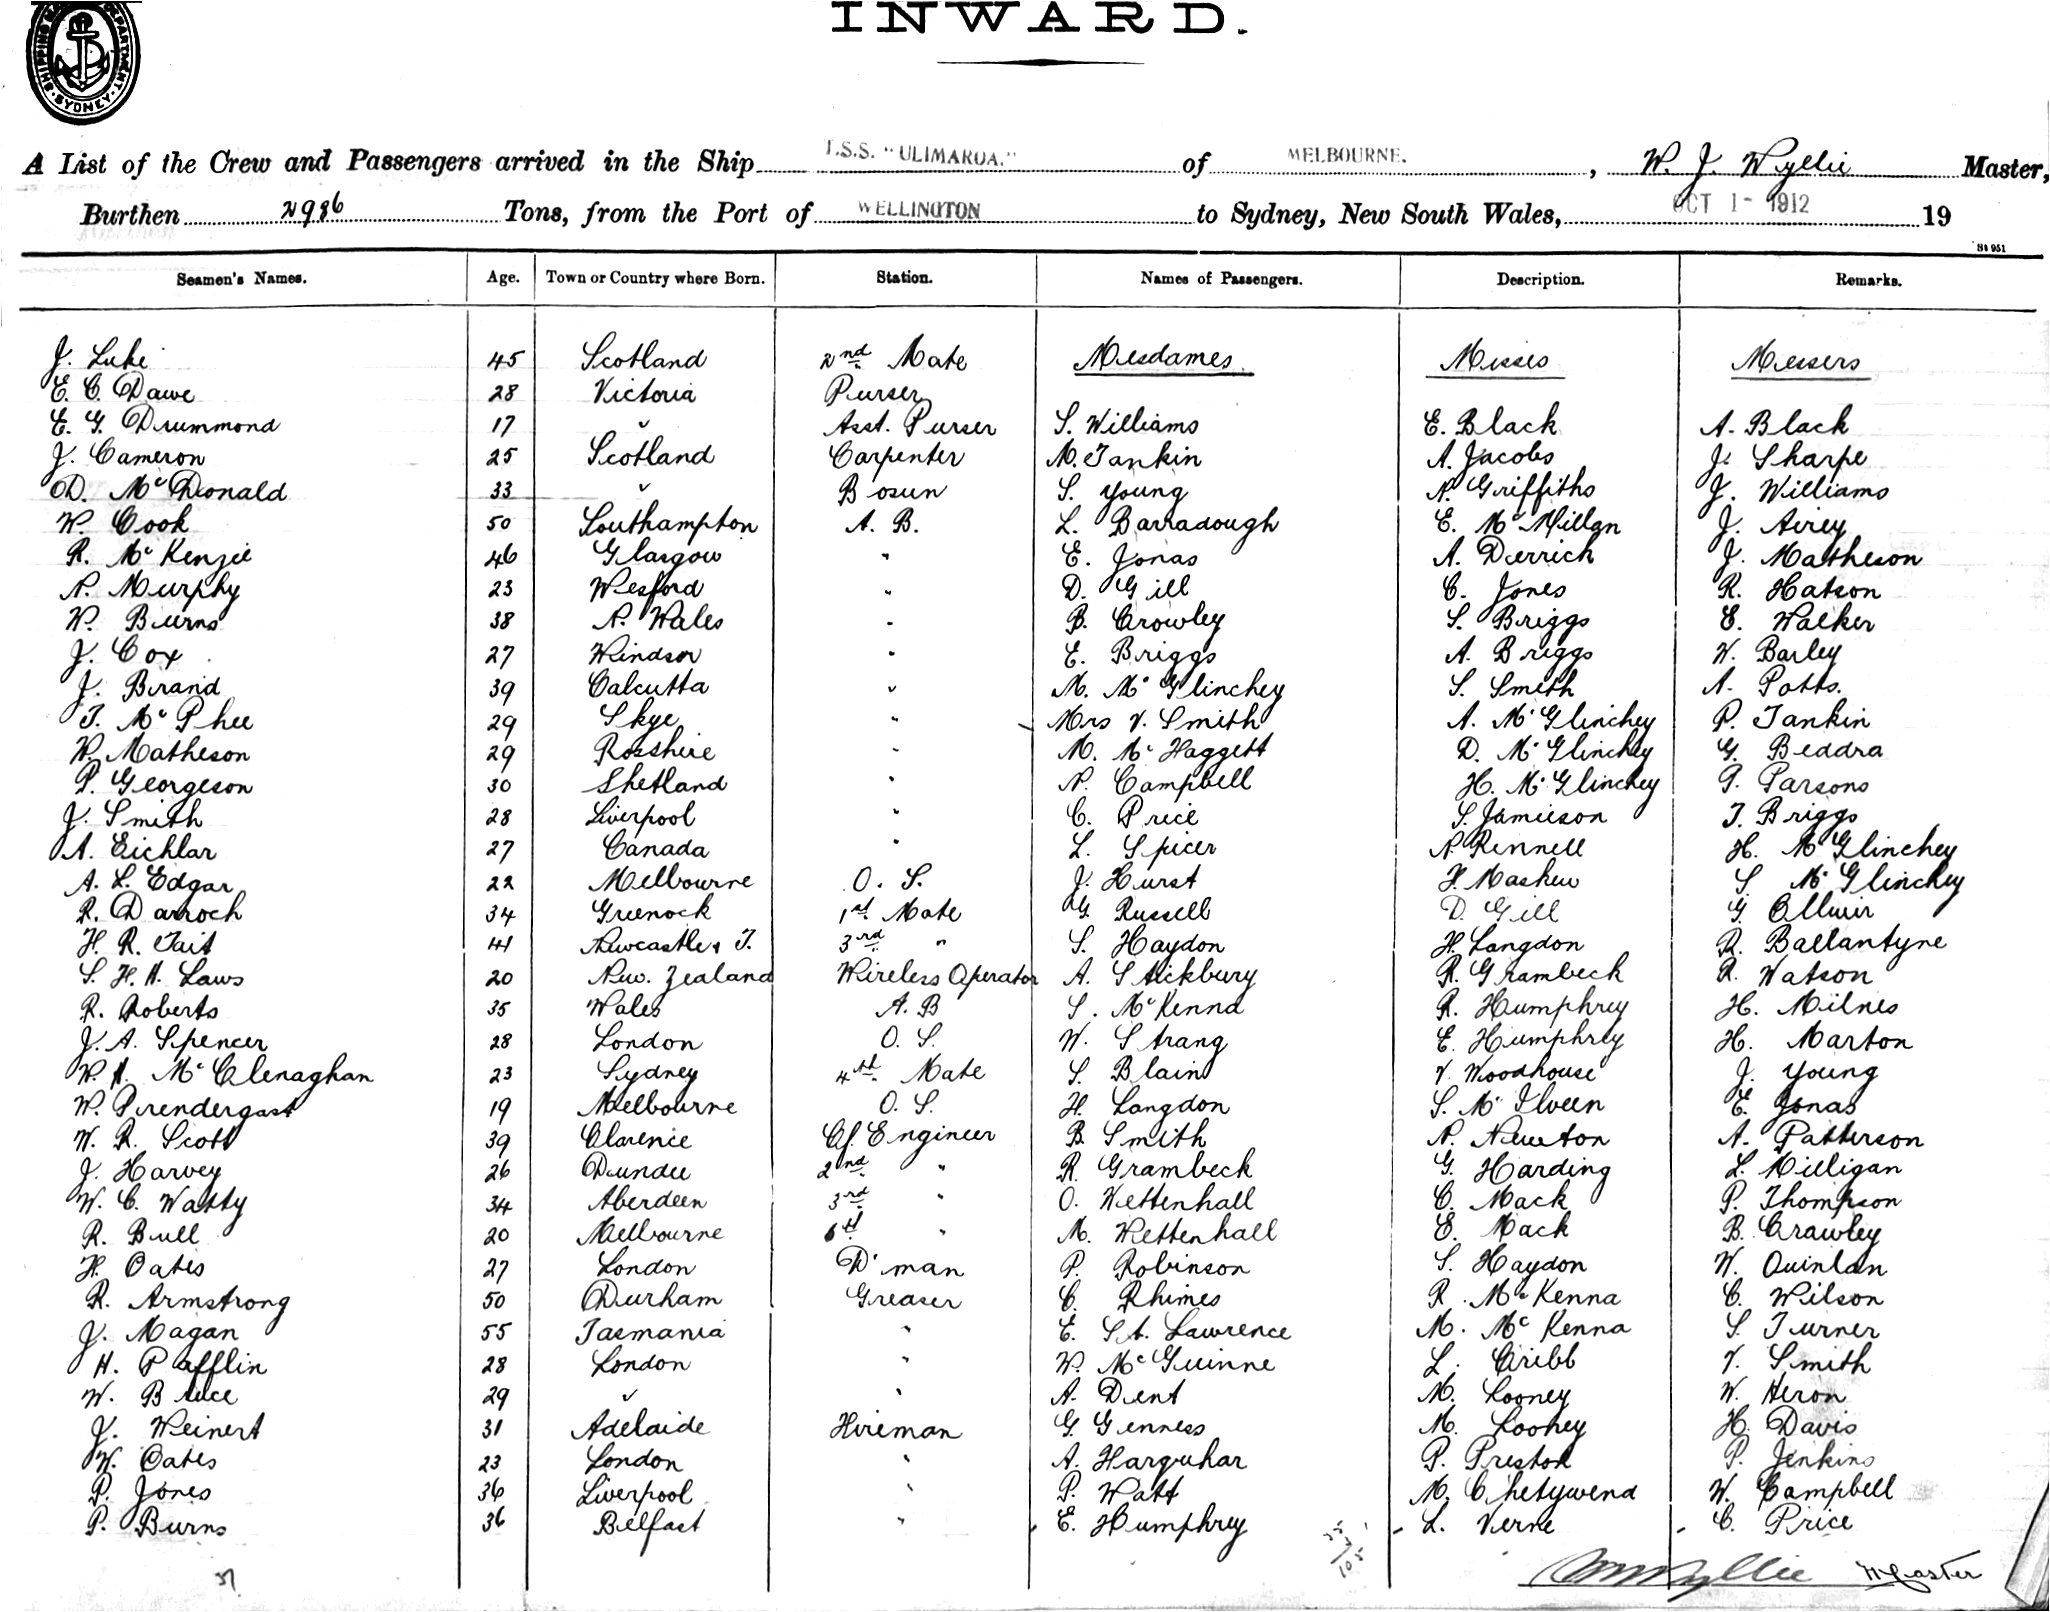 INWARD.
SHIPPING DEPARTMENT. SYDNEY.
A List of the Crew and Passengers arrived in the Ship T.S.S. "ULIMAROA." of MELBOURNE. , W. J. Wyllie Master,
Burthen 2986 Tons, from the Port of WELLINGTON to Sydney, New South Wales, OCT 1- 1912 19
St 951
Seamen's Names. Age. Town or Country where Born. Station. Names of Passengers. Description. Remarks.
J. Luke 45 Scotland 2nd Mate Mesdames Misses Messers
E. C. Dawe 28 Victoria Purser
E. G. Drummond 17 " Asst. Purser S. Williams E. Black A. Black
J. Cameron 25 Scotland Carpenter M. Tankin A. Jacobs J. Sharpe
D. McDonald 33 " Bosun S. Young N. Griffiths J. Williams
W. Cook 50 Southampton A. B. L. Barradough E. McMillan J. Airey
R. McKenzie 46 Glasgow " E. Jonas A. Derrick J. Matheson
N. Murphy 23 Wesford " D. Gill C. Jones R. Hatson
W. Burns 38 N. Wales " B. Crowley S. Briggs E. Walker
J. Cox 27 Windsor " E. Briggs A. Briggs W. Barley
J. Brand 39 Calcutta " M. McGlinchey S. Smith A. Potts.
T. McPhee 29 Skye " Mrs V. Smith A. McGlinchey P. Tankin
W. Matheson 29 Rosshire " M. McHaggett D. McGlinchey G. Beddra
P. Georgeson 30 Shetland " N. Campbell H. McGlinchey G. Parsons
J. Smith 28 Liverpool " C. Price S. Jamieson T. Briggs
A. Eichlar 27 Canada " L. Spicer N. Rennell H. McGlinchey
A. L. Edgar 22 Melbourne O. S. J. Hurst H. Mashew S. McGlinchey
R. Darroch 34 Greenock 1st Mate G. Russell D. Gill G. Olliver
H. R. Tait 41 Newcastle o T. 3rd " S. Haydon H. Langdon R. Ballantyne
S. H. A. Laws 20 New. Zealand Wireless Operator A. Stickbury R. Grambeck R. Watson
R. Roberts 35 Wales A. B S. McKenna R. Humphrey H. Milnes
J. A. Spencer 28 London O. S. W. Strang E. Humphrey H. Marton
W. A. McClenaghan 23 Sydney 4th Mate S. Blain V. Woodhouse J. Young
W. Prendergast 19 Melbourne O. S. H. Langdon S. McIlveen E. Jonas
W. R. Scott 39 Clarence Cf. Engineer B. Smith N. Newton A. Patterson
J. Harvey 26 Dundee 2nd " R. Grambeck G. Harding L. Milligan
W. C. Watty 34 Aberdeen 3rd " O. Wettenhall C. Mack P. Thompson
R. Bull 20 Melbourne 6th " M. Wettenhall E. Mack B. Crawley
H. Oates 27 London D'man P. Robinson S. Haydon W. Quinlan
R. Armstrong 50 Durham Greaser C. Rhimes R. McKenna C. Wilson
J. Magan 55 Tasmania " E. St. Lawrence M. McKenna S. Turner
H. Pafflin 28 London " W. McGuinne L. Cribb V. Smith
W. Bruce 29 " " A. Dent M. Looney W. Heron
J. Weinert 31 Adelaide Fireman G. Genness M. Looney H. Davis
W. Oates 23 London " A. Harquhar P. Preston P. Jenkins
P. Jones 36 Liverpool " P. Watt M. Chetywend W. Campbell
P. Burns 36 Belfast " E. Humphrey L. Verne C. Price
37 35 3 105
WJWyllie Master